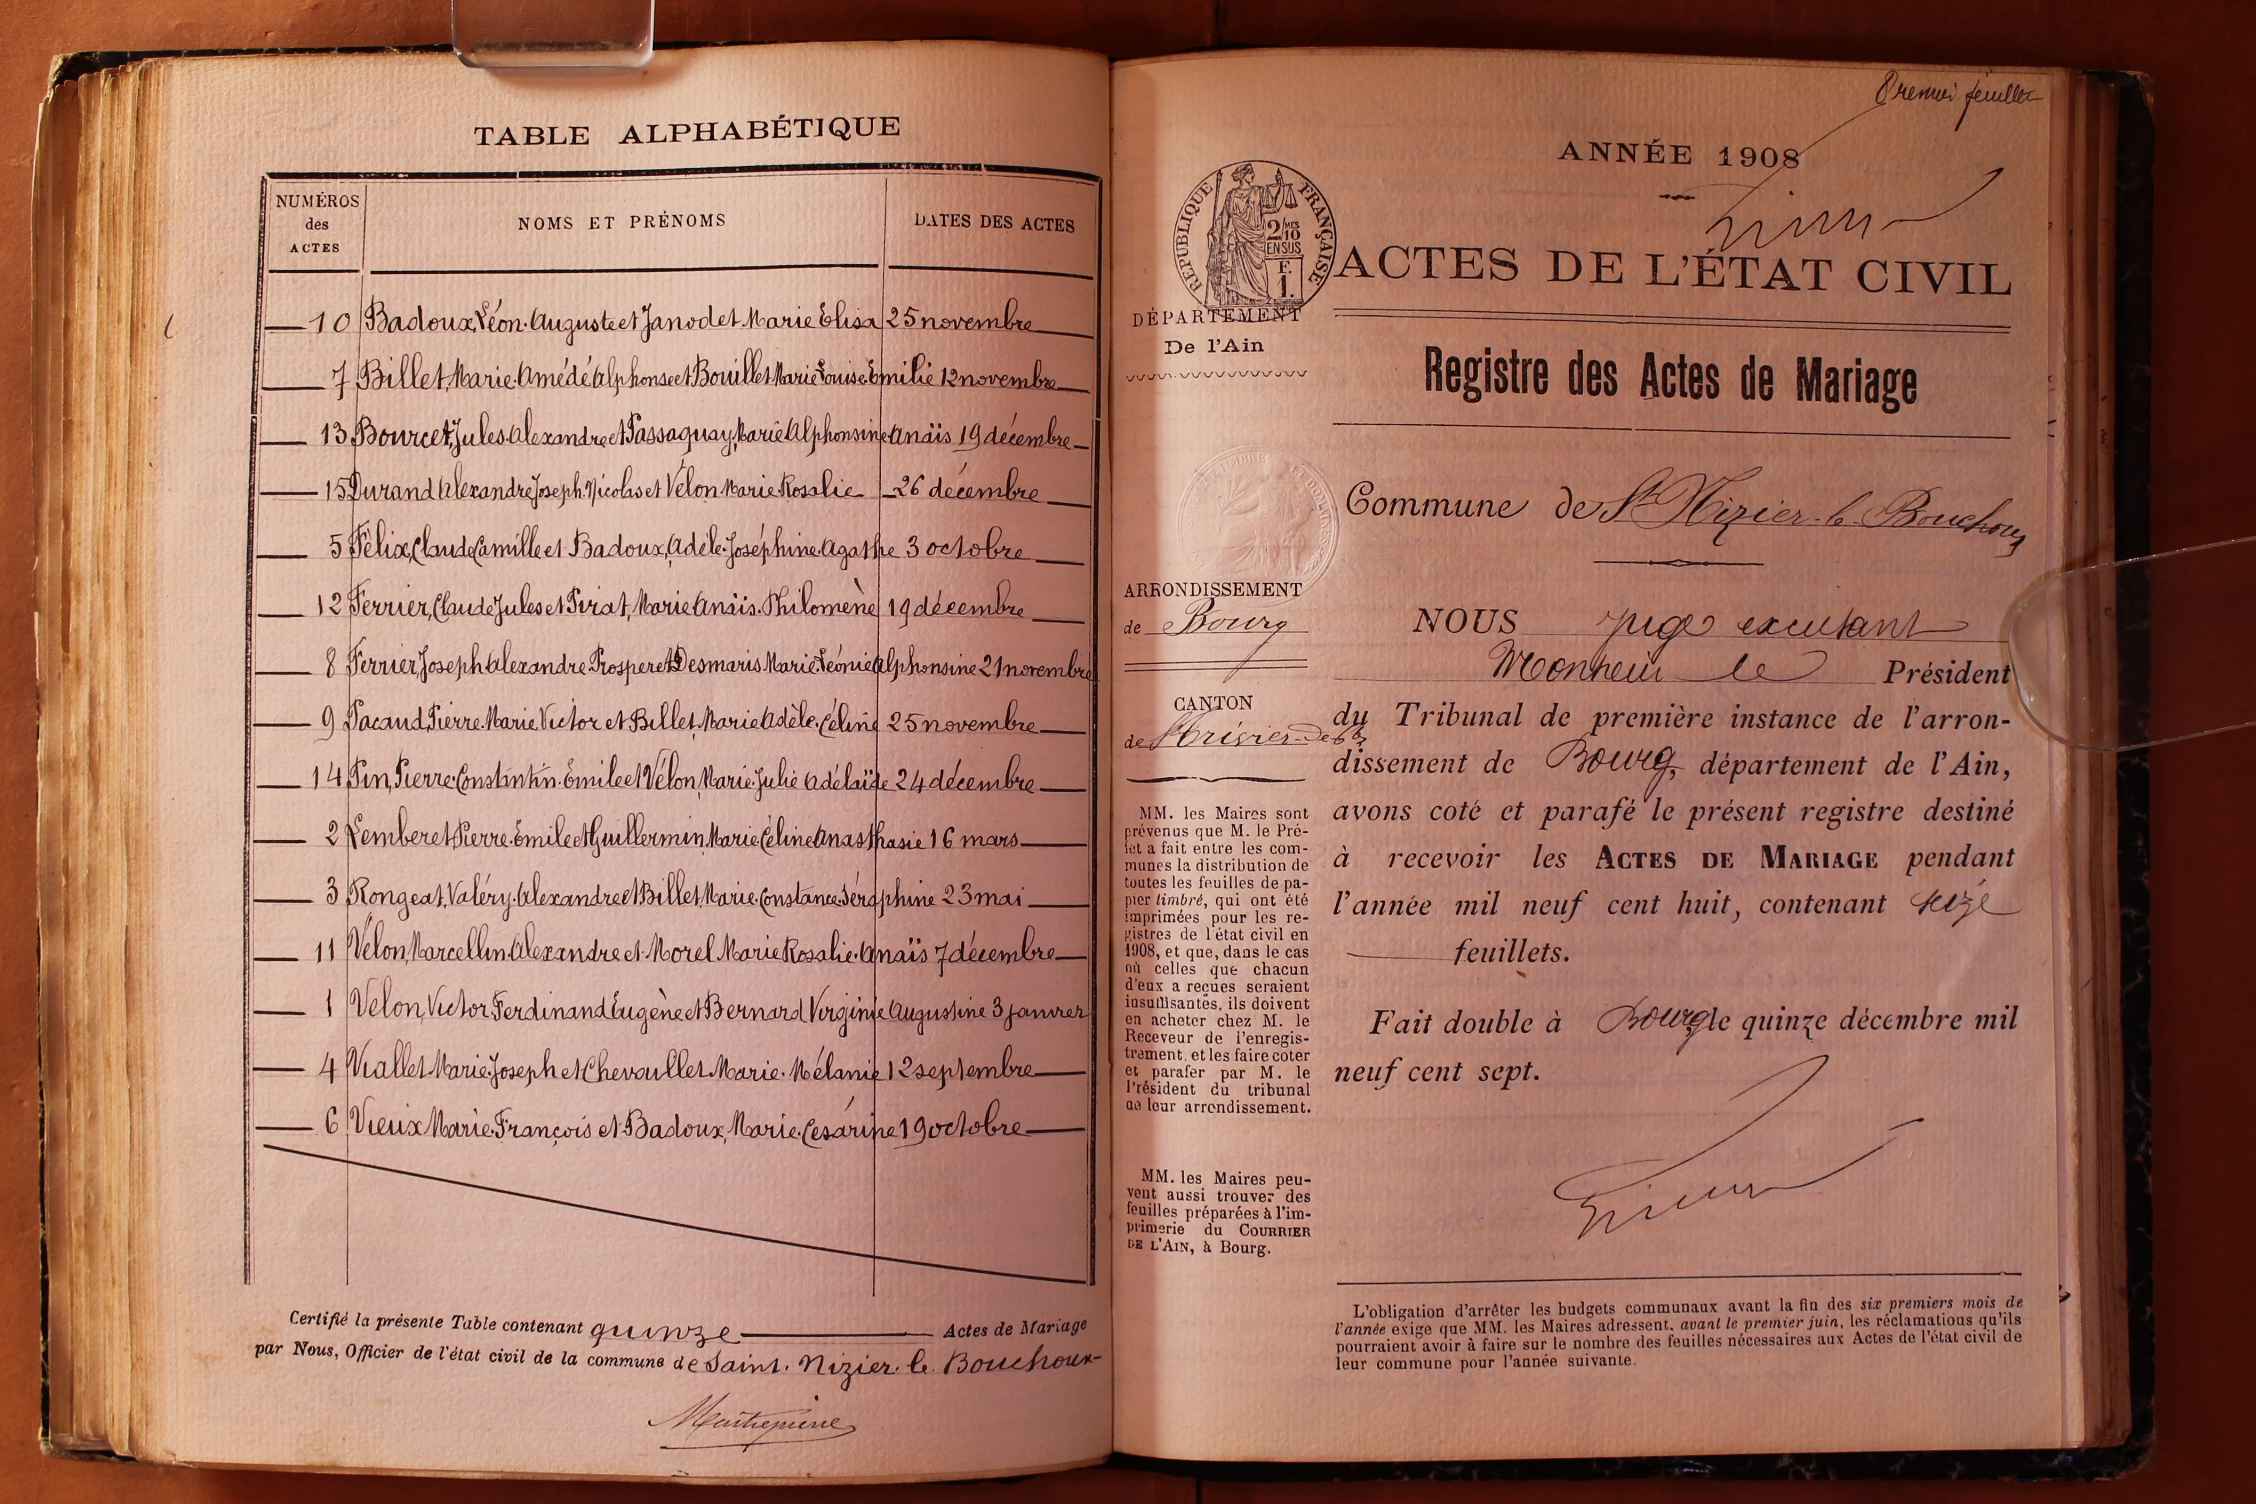 TABLE ALPHABÉTIQUE
NUMÉROS des ACTES
NOMS ET PRÉNOMS
DATES DES ACTES
10 Badoux, Léon. Auguste et Janodet Marie Elisa 25 novembre
7 Billet, Marie. Amédé Alphonse et Bouillet Marie Louise Emilie 12 novembre
13 Bourcet, Jules. Alexandre et Passaquay, Marie Alphonsine Anaïs 19 décembre
15 Durand Alexandre Joseph. Nicolas et Vélon Marie Rosalie 26 décembre
5 Félix, Claude Camille et Badoux, Adèle. Joséphine. Agathe 3 octobre
12 Ferrier, Claude Jules et Pirat, Marie Anaïs. Philomène 19 décembre
8 Ferrier, Joseph Alexandre Prosper et Desmaris Marie Léonie Alphonsine 21 novembre
9 Pacaud, Pierre. Marie Victor et Billet, Marie Adèle. Céline 25 novembre
14 Pin, Pierre. Constantin. Emile et Vélon, Marie. Julie Adélaïde 24 décembre
2 Remberet Pierre. Emile et Guillermin, Marie Céline Anasthasie 16 mars
3 Rongeat, Valéry. Alexandre et Billet, Marie. Constance. Séraphine 23 mai
11 Vélon, Marcellin. Alexandre et Morel Marie Rosalie. Anaïs 7 décembre
1 Velon, Victor Ferdinand Eugène et Bernard Virginie Augustine 3 janvier
4 Viallet Marie. Joseph et Chevaullet Marie. Mélanie 12 septembre
6 Vieux Marie. François et Badoux, Marie. Césarine 19 octobre
Certifié la présente Table contenant quinze Actes de Mariage
par Nous, Officier de l'état civil de la commune de Saint. Nizier. le. Bouchoux
Premier feuillet
ANNÉE 1908
RÉPUBLIQUE FRANÇAISE
2/10 MES
EN SUS
F.
1.
ACTES DE L'ÉTAT CIVIL
DÉPARTEMENT
De l'Ain
Registre des Actes de Mariage
Commune de St Nizier-le-Bouchoux
ARRONDISSEMENT
de Bourg
CANTON
de St Trivier-de-
MM. les Maires sont
prévenus que M. le Pré-
fet a fait entre les com-
munes la distribution de
toutes les feuilles de pa-
pier timbré, qui ont été
imprimées pour les re-
gistres de l'état civil en
1908, et que, dans le cas
où celles que chacun
d'eux a reçues seraient
insuffisantes, ils doivent
en acheter chez M. le
Receveur de l'enregis-
trement, et les faire coter
et parafer par M. le
Président du tribunal
de leur arrondissement.
MM. les Maires peu-
vent aussi trouver des
feuilles préparées à l'im-
primerie du COURRIER
DE L'AIN, à Bourg.
NOUS juge excusant
Monsieur le Président
du Tribunal de première instance de l'arron-
dissement de Bourg, département de l'Ain,
avons coté et parafé le présent registre destiné
à recevoir les ACTES DE MARIAGE pendant
l'année mil neuf cent huit, contenant seize
feuillets.
Fait double à Bourg le quinze décembre mil
neuf cent sept.
L'obligation d'arrêter les budgets communaux avant la fin des six premiers mois de
l'année exige que MM. les Maires adressent, avant le premier juin, les réclamations qu'ils
pourraient avoir à faire sur le nombre des feuilles nécessaires aux Actes de l'état civil de
leur commune pour l'année suivante.